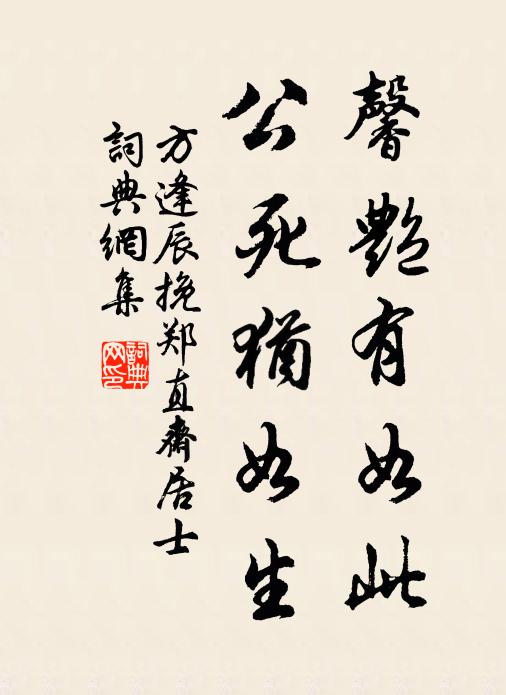 馨艷有如此
公死猶如生
方逢辰挽郑直齋居士
詞典網集
詞典网印